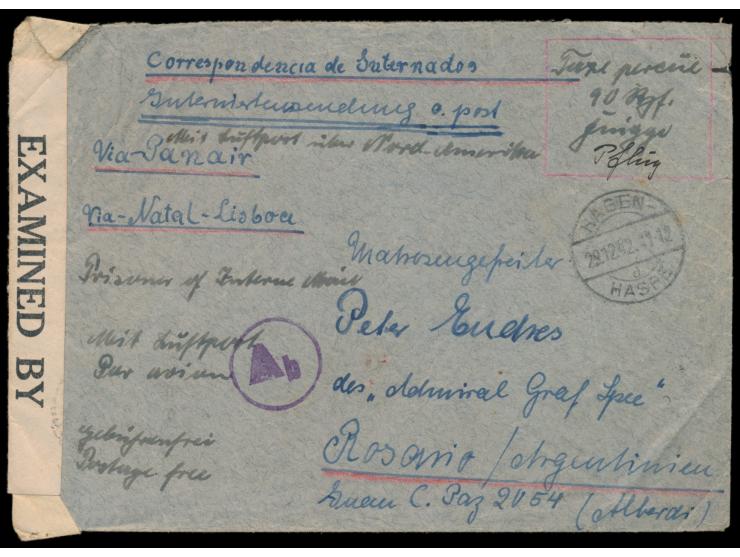 Correspondencia de Internados
Interniertensendung o. post
Mit Luftpost über Nord-Amerika
Via-Panair
Via-Natal-Lisboa
Taxe percue
90 Rpf.
Pflug
HAGEN-
29.12.42.11-12
d
HASPE
Prisoner of Interne Mail
Mit Luftpost
Par avion
Ab
gebührenfrei
Postage free
Matrosengefreiter
Peter Endres
des „Admiral Graf Spee"
Rosario / Argentinien
Juan C. Paz 2054 (Alberdi)
EXAMINED BY